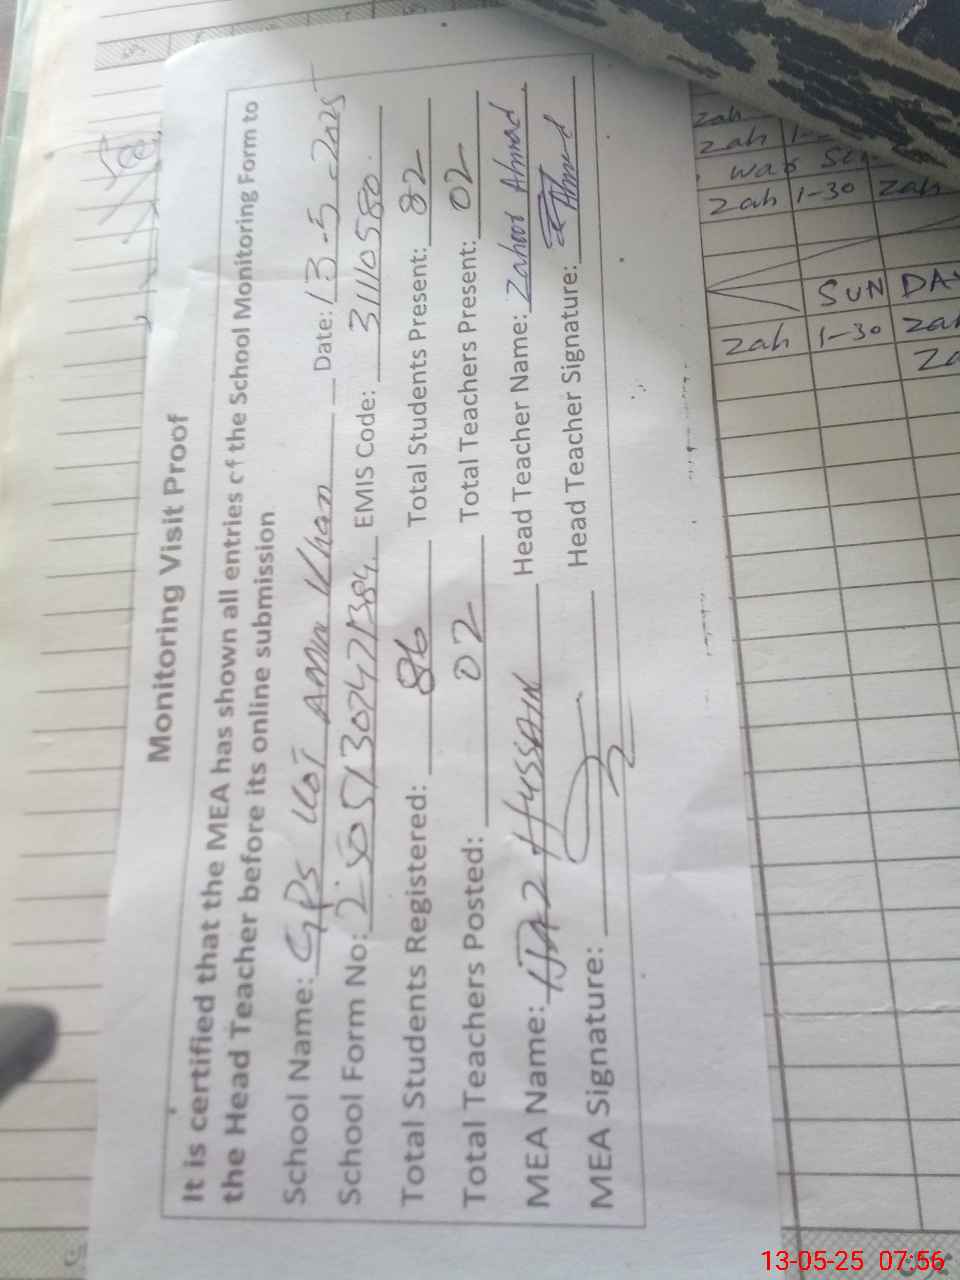 Monitoring Visit Proof
It is certified that the MEA has shown all entries of the School Monitoring Form to
the Head Teacher before its online submission
School Name: GPS Kot Amir Khan Date: 13-5-2025
School Form No: 25051307471384 EMIS Code: 31110580
Total Students Registered: 86 Total Students Present: 82
Total Teachers Posted: 02 Total Teachers Present: 02
MEA Name: IJAZ HUSSAIN Head Teacher Name: Zahoor Ahmad
MEA Signature: Head Teacher Signature: Ahmad
zah
zah
zah 1-30 zah
SUN DAY
zah 1-30 zah
13-05-25 07:56